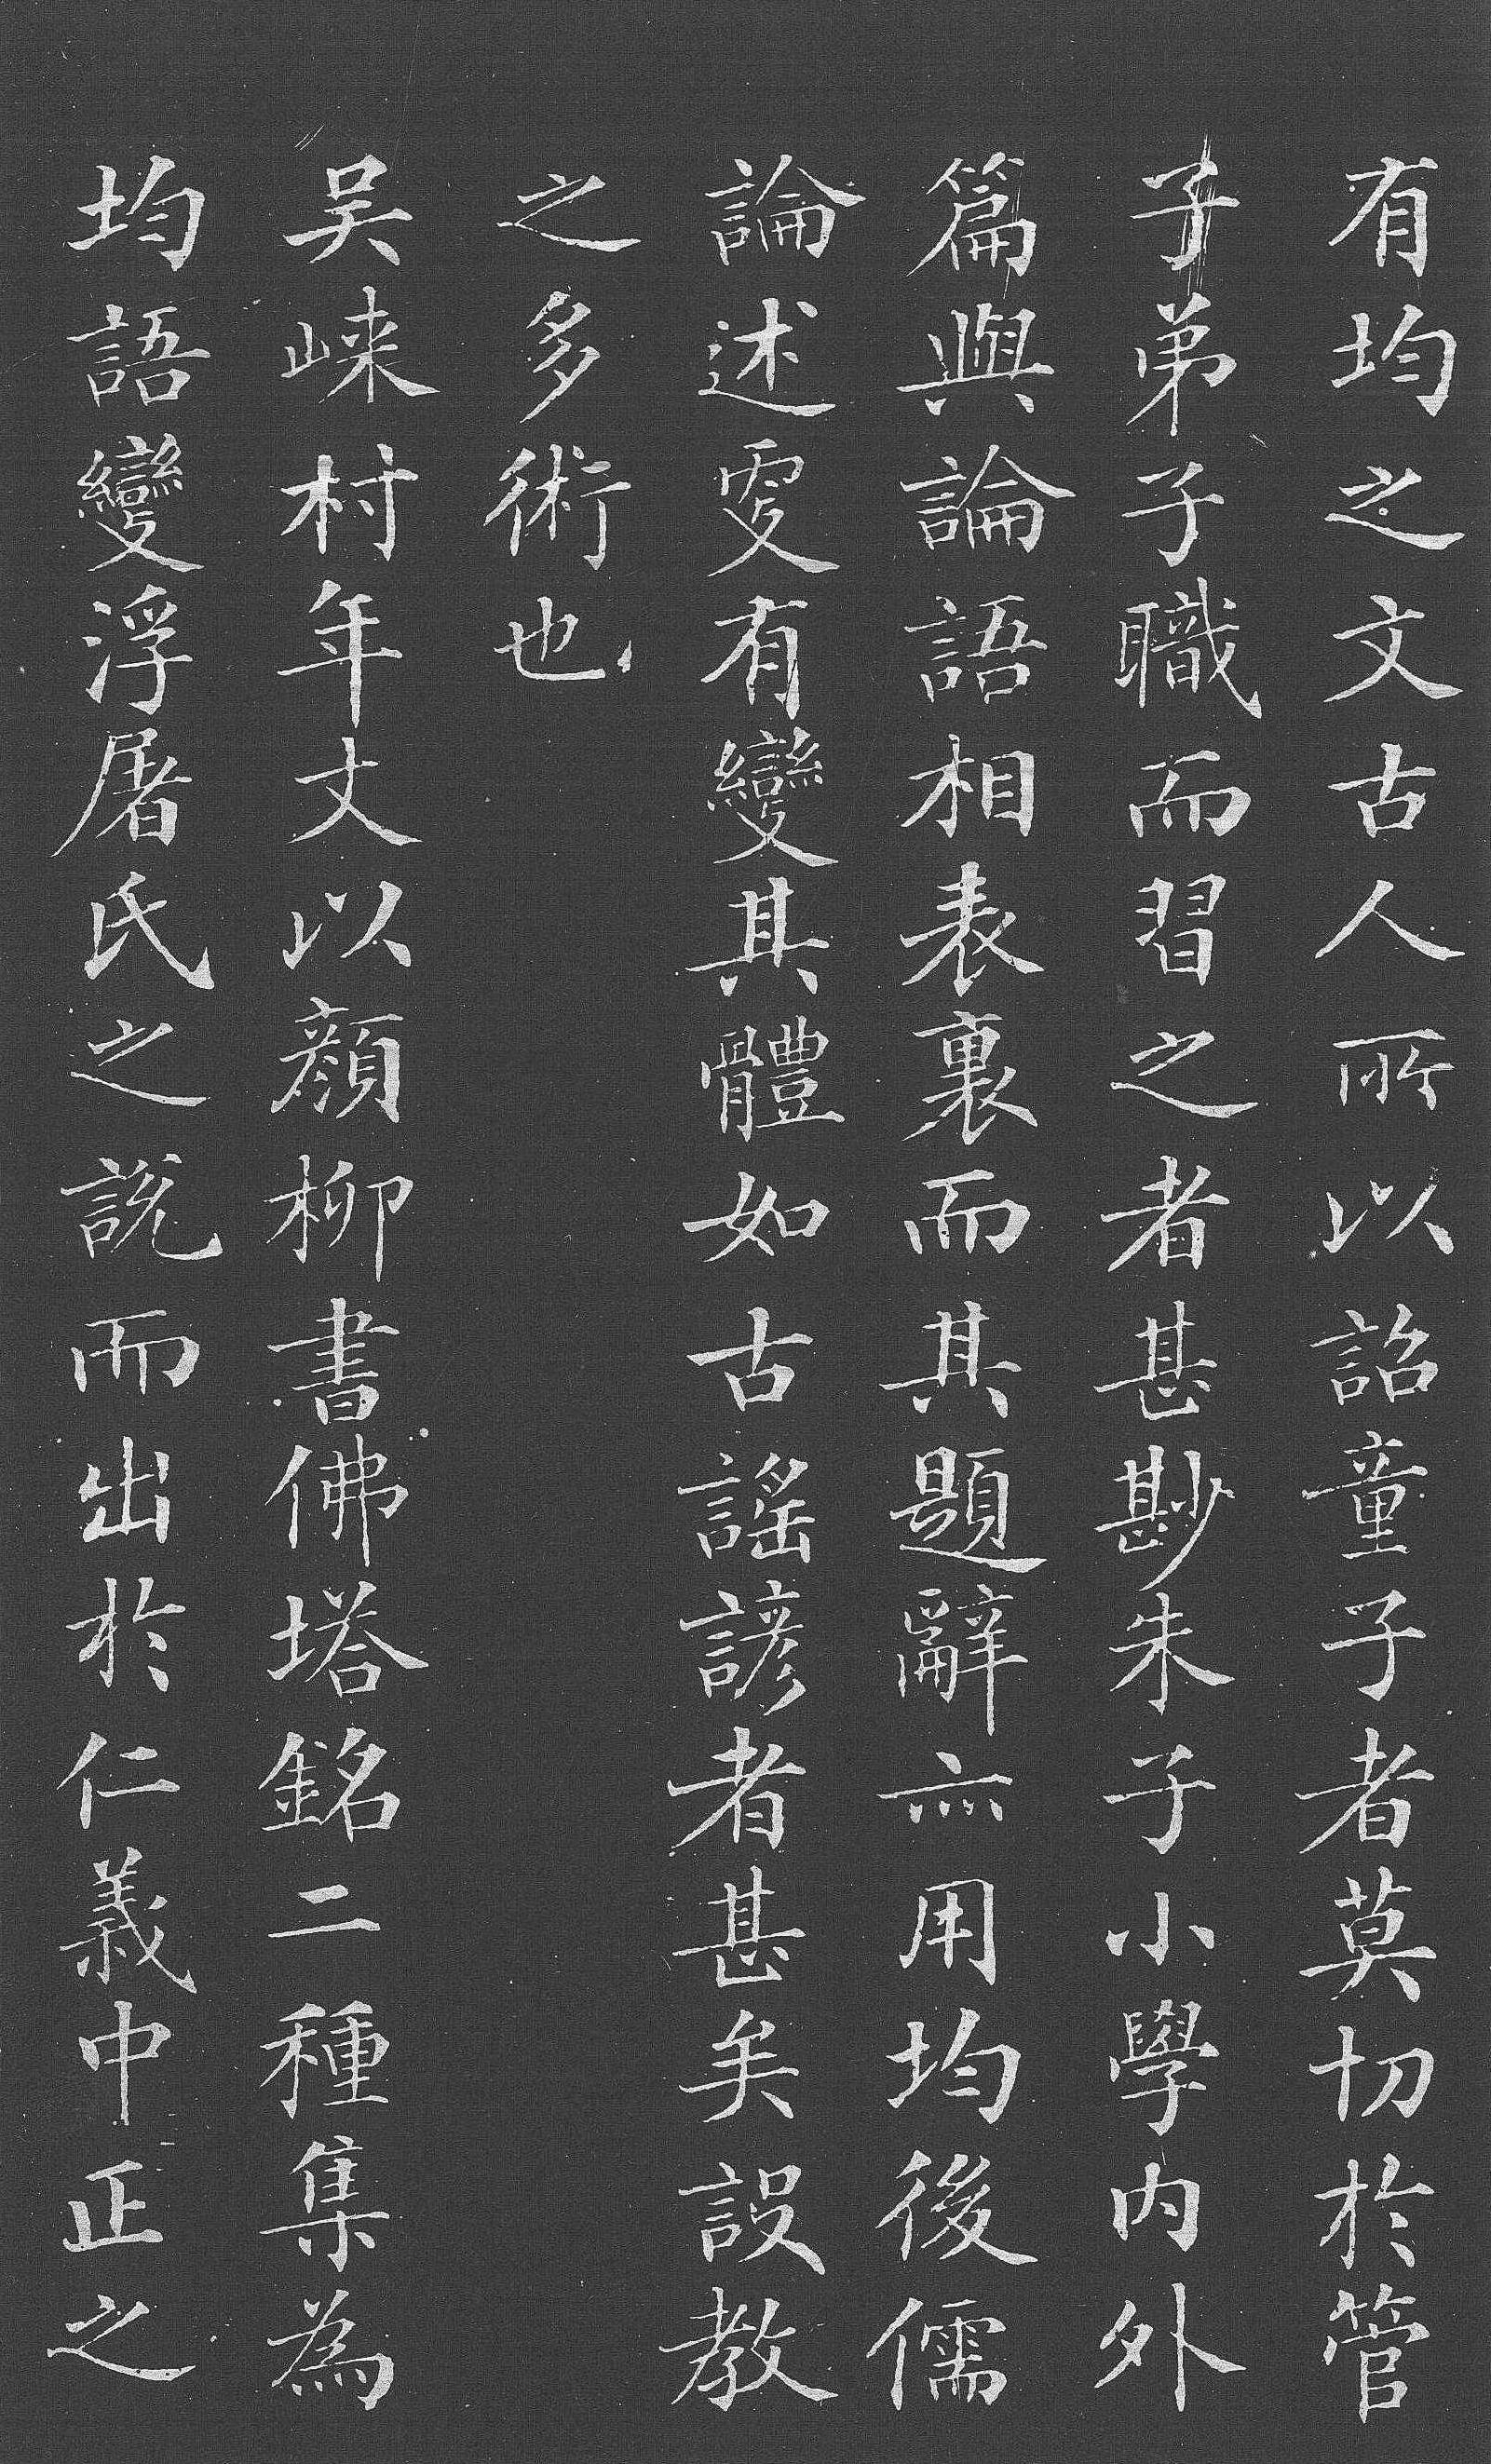 有均之文古人所以詔童子者莫切於管
子弟子職而習之者甚尠朱子小學內外
篇與論語相表裏而其題辭亦用均後儒
論述叓有變其體如古謠諺者甚矣設教
之多術也
吴崍村年丈以顏柳書佛塔銘二種集為
均語變浮屠氏之說而出於仁義中正之